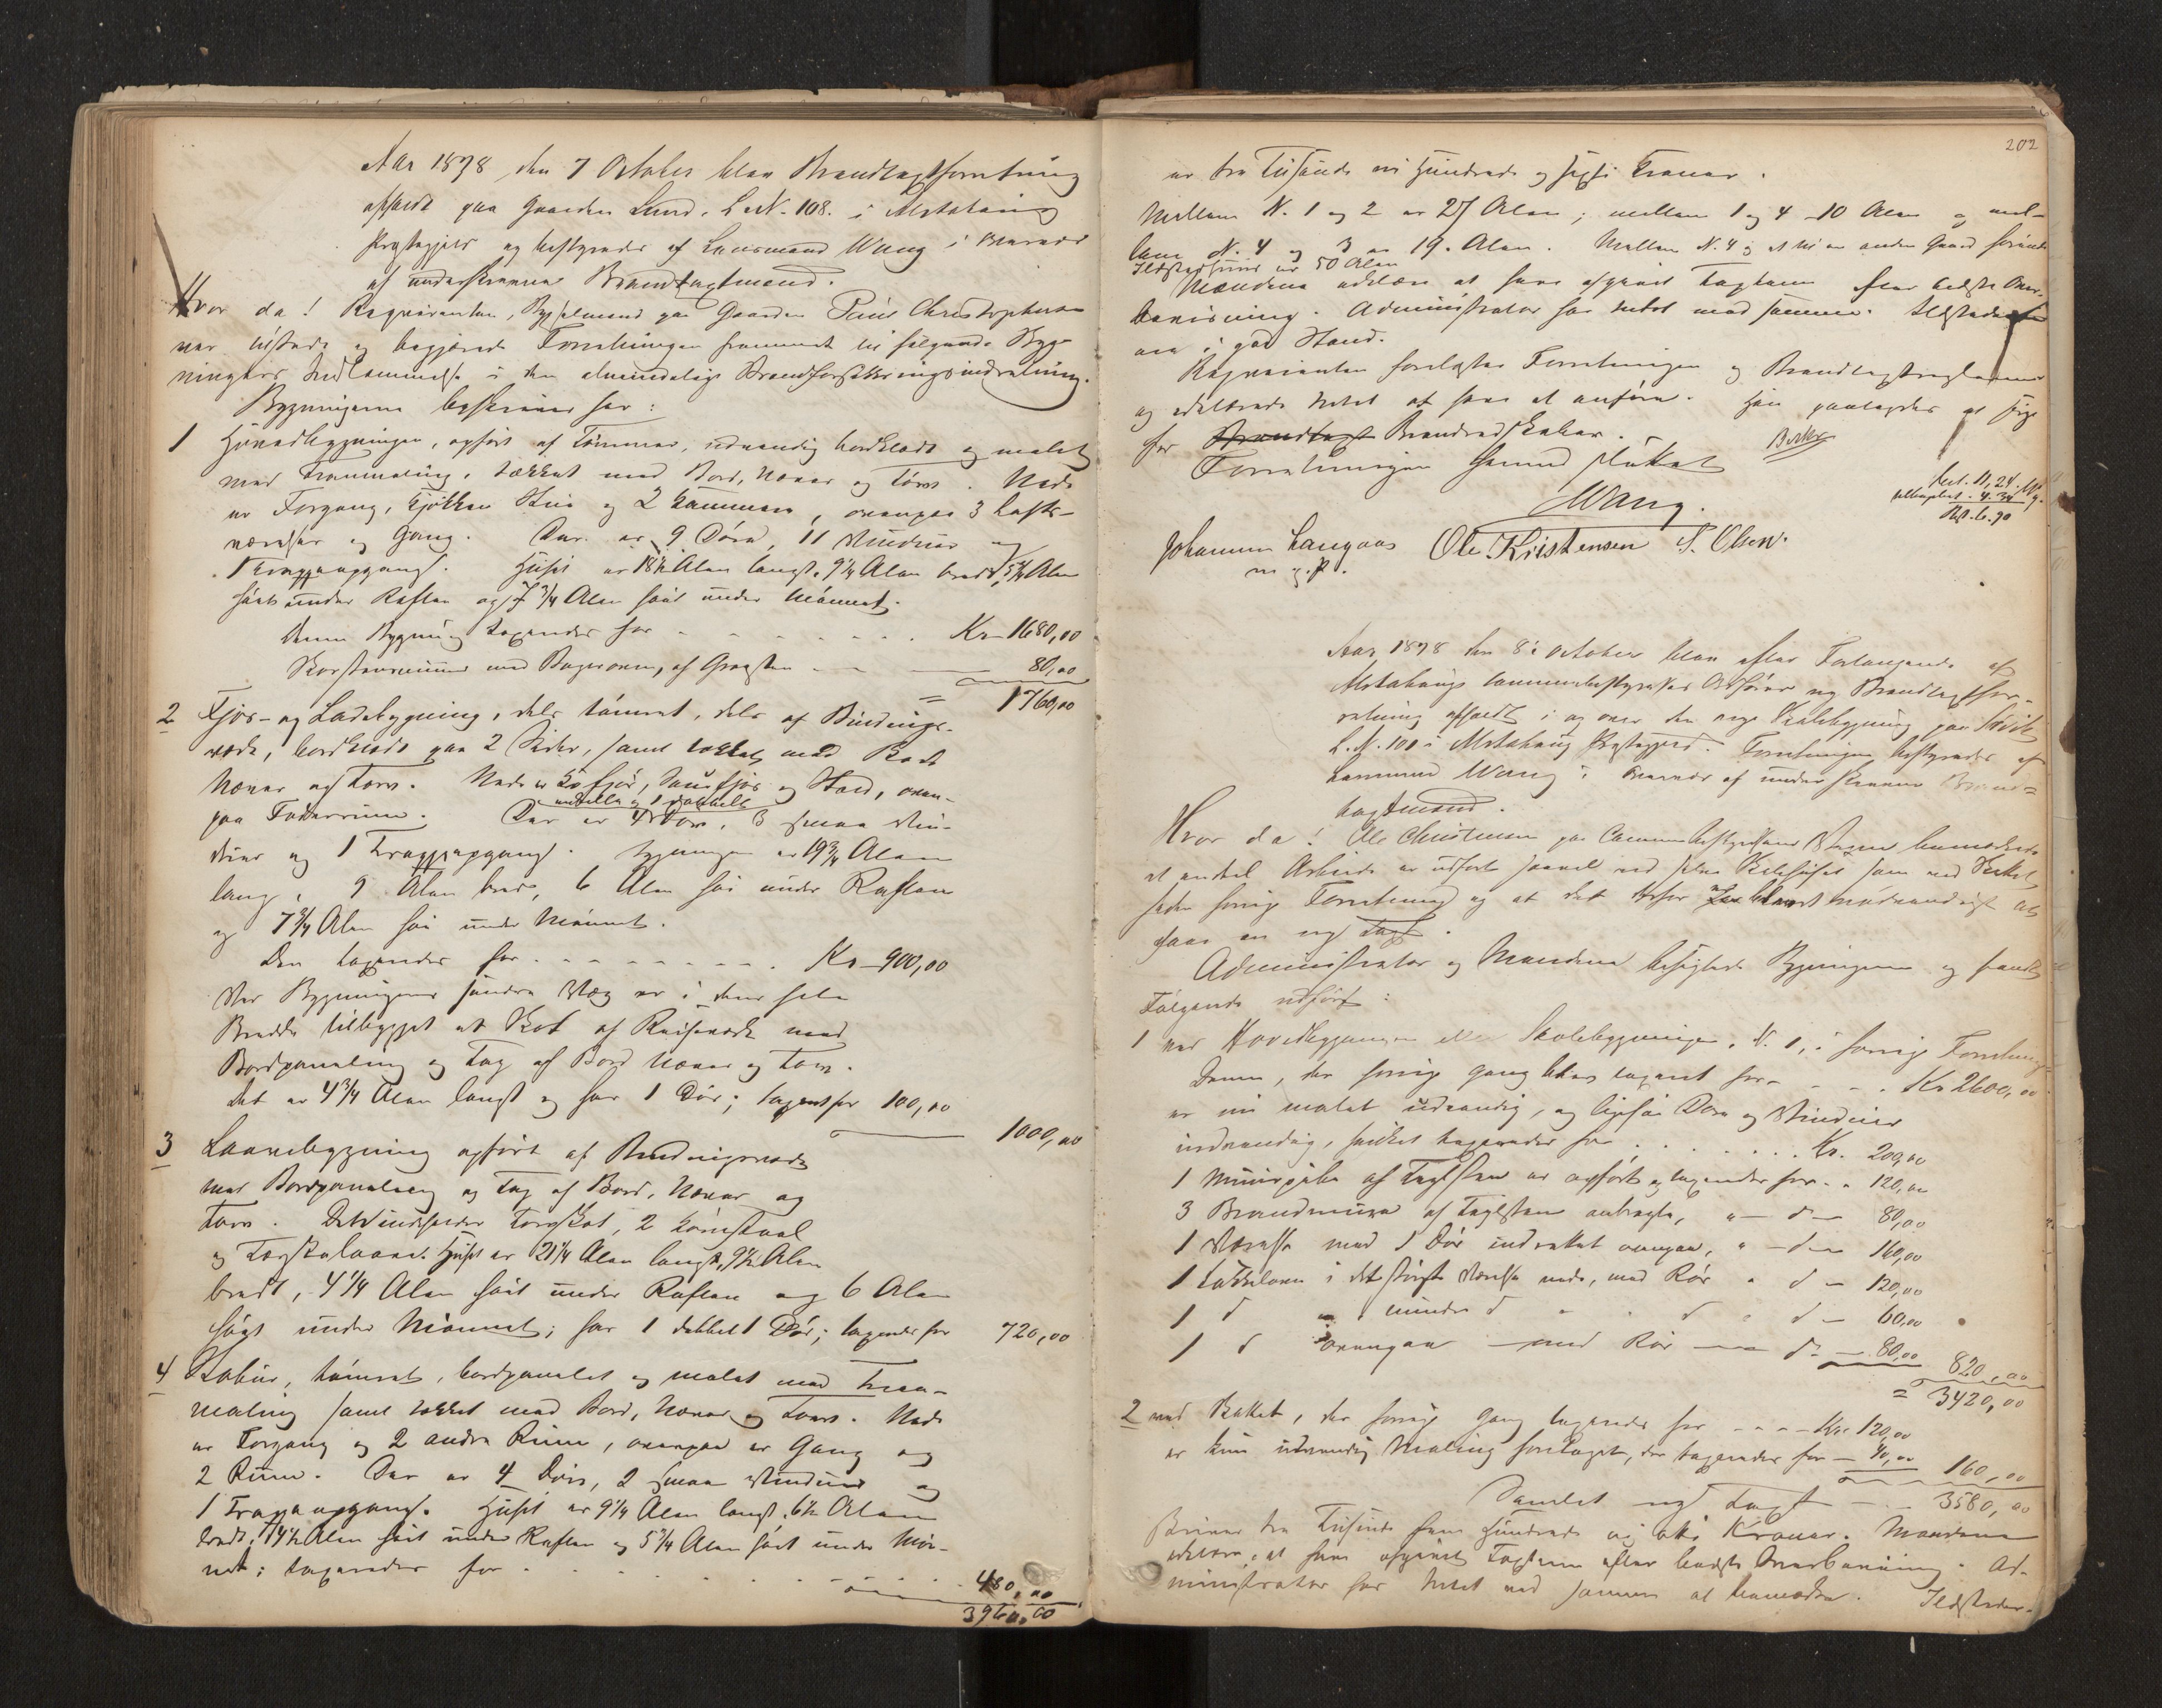 Aar 1878, den 7 October blev Brandtaxtforretning
afholdt paa Gaarden Lund, L.N. 108. i Alstahoug
Præstegjeld og bestyredes af Lensmand Wang i Overvær
af underskrevne Brandtaxtmænd.
Hvor da! Requirenten, Bygselmand paa Gaarden Peder Christophersen
var tilstede og begjærede Forretningen fremmet til følgende Byg-
ningers Indlemmelse i den almindelige Brandforsikringsindretning.
Bygningerne beskrives saa:
1 Hovedbygningen, opført af Tømmer, udvendig bordklædt og malet
med Tranmaling, tækket med Bord, Næver og Torv. Nede
er Forgang, Kjøkken Stue og 2 Kammere, ovenpaa 3 Lofts-
værelser og Gang. Der er 9 Døre, 11 Vinduer og
1 Trappeopgang. Huset er 18½ Alen langt, 9¼ Alen bredt, 5¼ Alen
høit under Raften og 7¾ Alen høit under Mønnet.
Denne Bygning taxeredes for - - - - - - - Kr 1680,00
Skorstensmuur med Bagerovn, af Graasten - - - 80,00
= 1760,00
2 Fjøs- og Ladebygning, dels tømret, dels af Bindings-
værk, bordklædt paa 2 Sider, samt tækket med Bord
Næver og Torv. Nede er Kofjøs, Sauefjøs og Stald, oven-
enkelte og 1 dobbelt
paa Foderrum. Der er 4 Døre, 3 smaa Vin-
duer og 1 Trappeopgang. Bygningen er 19¾ Alen
lang, 9 Alen bred, 6 Alen høi under Raften
og 7¾ Alen høi under Mønnet.
Den taxeredes for - - - - - - - - Kr 900,00
Ved Bygningens søndre Væg er i dens hele
Bredde tilbygget et Skot af Reisværk med
Bordpaneling og Tag af Bord Næver og Torv.
Det er 4¾ Alen langt og har 1 Dør; taxeret for 100,00
1000,00
3 Laavebygning opført af Bindingsværk
med Bordpaneling og Tag af Bord, Næver og
Torv. Det indeholder Torvskot, 2 Kornstaal
og Tærskelaave. Huset er 21¼ Alen langt, 9½ Alen
bredt, 4¼ Alen høit under Raften og 6 Alen
høit under Mønnet; har 1 dobbelt Dør; taxeredes for 720,00
4 Stabur, tømret, bordpanelet og malet med Tran-
maling samt tækket med Bord, Næver og Torv. Nede
er Forgang og 2 andre Rum, ovenpaa er Gang og
2 Rum. Der er 4 Døre, 2 smaa Vinduer og
1 Trappeopgang. Huset er 9¼ Alen langt, 6½ Alen
bredt, 4½ Alen høit under Raften og 5¾ Alen høit under Møn-
net; taxeredes for - - - - - - 480,00
3960,00
202
er tre Tusinde ni Hundrede og sexti Kroner.
Mellem N. 1 og 2 er 27 Alen; mellem 1 og 4 10 Alen og mel-
lem N. 4 og 3 er 19 Alen. Mellem N. 4 og et til en anden Gaard hørende
Ildstedhuus er 50 Alen
Mændene erklære at have afgivet Taxten efter bedste Over-
bevisning. Administrator har Intet mod samme. Ildstederne
ere i god Stand.
Requirenten forelæstes Forretningen og Brandtaxtreglerne
og erklærede Intet at have at anføre. Han paalagdes at sørge
for Brandtaxt Brandredskaber.
Forretningen hermed sluttet
Wang.
Johannes Langaas Ole Kristensen S. Olsen.
m. p. P.
Aar 1878 den 8de October blev efter Forlangende af
Alstahougs Communebestyrelses Ordfører ny Brandtaxtfor-
retning afholdt i og over den nye Skolebygning paa
L.N. 100 i Alstahoug Præstegjeld. Forretningen bestyredes af
Lensmand Wang i Overvær af underskrevne Brand-
taxtmænd.
Hvor da! Ole Christensen paa Communebestyrelsens Vegne bemærkede
at endel Arbeide er udført saavel ved selve Skolehuset som ved
siden forrige Forretning og at det derfor nødvendigt at
faae en ny Taxt.
Administrator og Mændene besigtede Bygningerne og fandt
Følgende udført:
1 ved Hovedbygningen eller Skolebygningen, N. 1, i forrige Forretning
Denne, der forrige Gang blev taxeret for - - - Kr 2600,00
er nu malet udvendig, og ligesaa Døre og Vinduer
indvendig, hvilket taxeredes for . . . . . . Kr. 200,00
1 Muurpibe af Teglsten er opført og taxeredes for - - 120,00
3 Brandmure af Teglsten anbragte, " - d - 80,00
1 Værelse med 1 Dør indrettet ovenpaa, " - d - 160,00
1 Kakkelovn i det største Værelse nede, med Rør " d - 120,00
1 d " mindre d " " d " d - 60,00
1 d ovenpaa - med Rør - - d - 80,00
820,00
= 3420,00
2 ved , der forrige Gang taxeredes for - - - Kr 120,00
er kun udvendig Maling foretaget, der taxeredes for - 40,00
160,00
Samlet ny Taxt - - - 3580,00
Skriver tre Tusinde fem Hundrede og otti Kroner. Mændene
erklære, at have afgivet Taxten efter bedste Overbevisning. Ad-
ministrator har Intet ved samme at bemærke. Ildsteder-